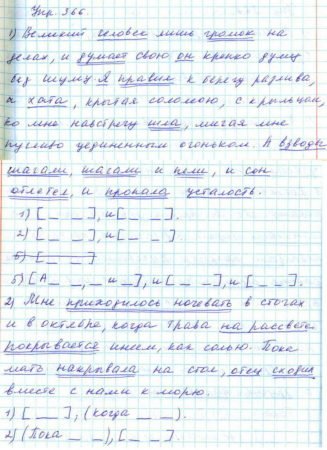 Упр. 366.
1) Великий человек лишь громок на
делах, и думает свою он крепко думу
без шуму. Я правил к берегу разлива,
а хата, крытая соломою, с крыльцом,
ко мне навстречу шла, мигая мне
пугливо уединенным огоньком. А взводы
шагали, шагали и пели, и сон
отлетел, и пропала усталость.
1) [_ _], и [_ _].
2) [_ _], и [_ _].
5) [_ _]
5) [А _ _, _ и _], и [_ _], и [_ _].
2) Мне приходилось ночевать в стогах
и в октябре, когда трава на рассвете
покрывается инеем, как солью. Пока
мать накрывала на стол, отец сходил
вместе с нами к морю.
1) [_ _], (когда _ _).
2) (Пока _ _), [_ _].